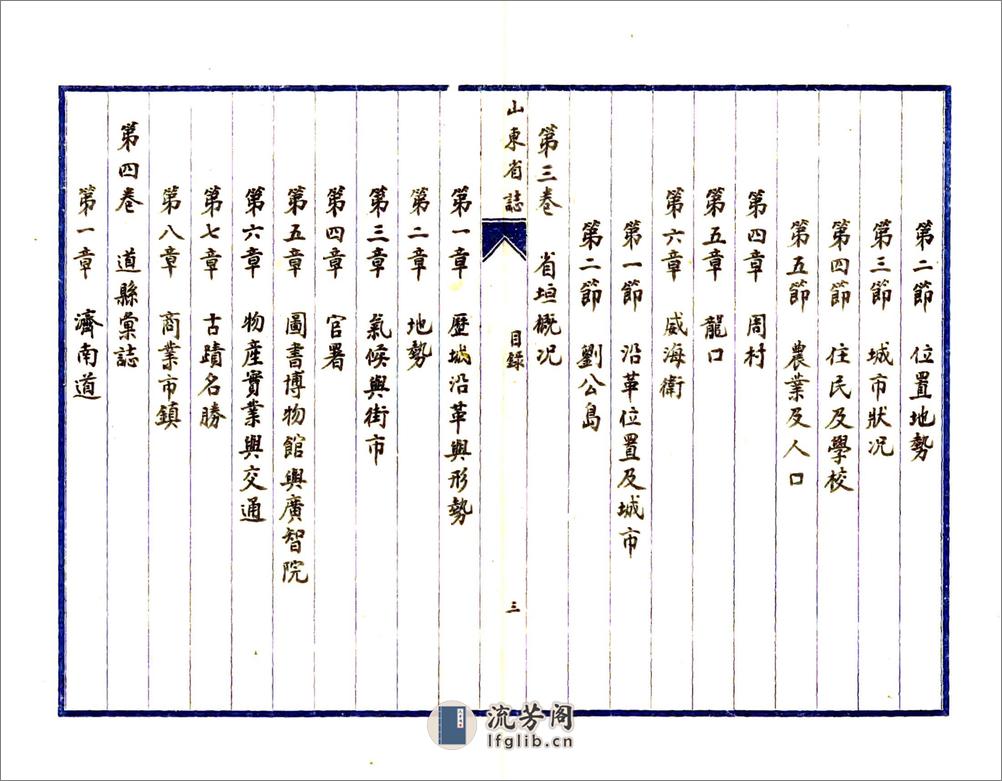 第二節　位置地勢
第三節　城市狀况
第四節　住民及學校
第五節　農業及人口
第四章　周村
第五章　龍口
第六章　威海衛
第一節　沿革位置及城市
第二節　劉公島
第三卷　省垣概况
山東省誌　目録　三
第一章　歷城沿革與形勢
第二章　地勢
第三章　氣候與街市
第四章　官署
第五章　圖書博物館與廣智院
第六章　物產實業與交通
第七章　古蹟名勝
第八章　商業市鎮
第四卷　道縣彙誌
第一章　濟南道
流芳阁
lfglib.cn